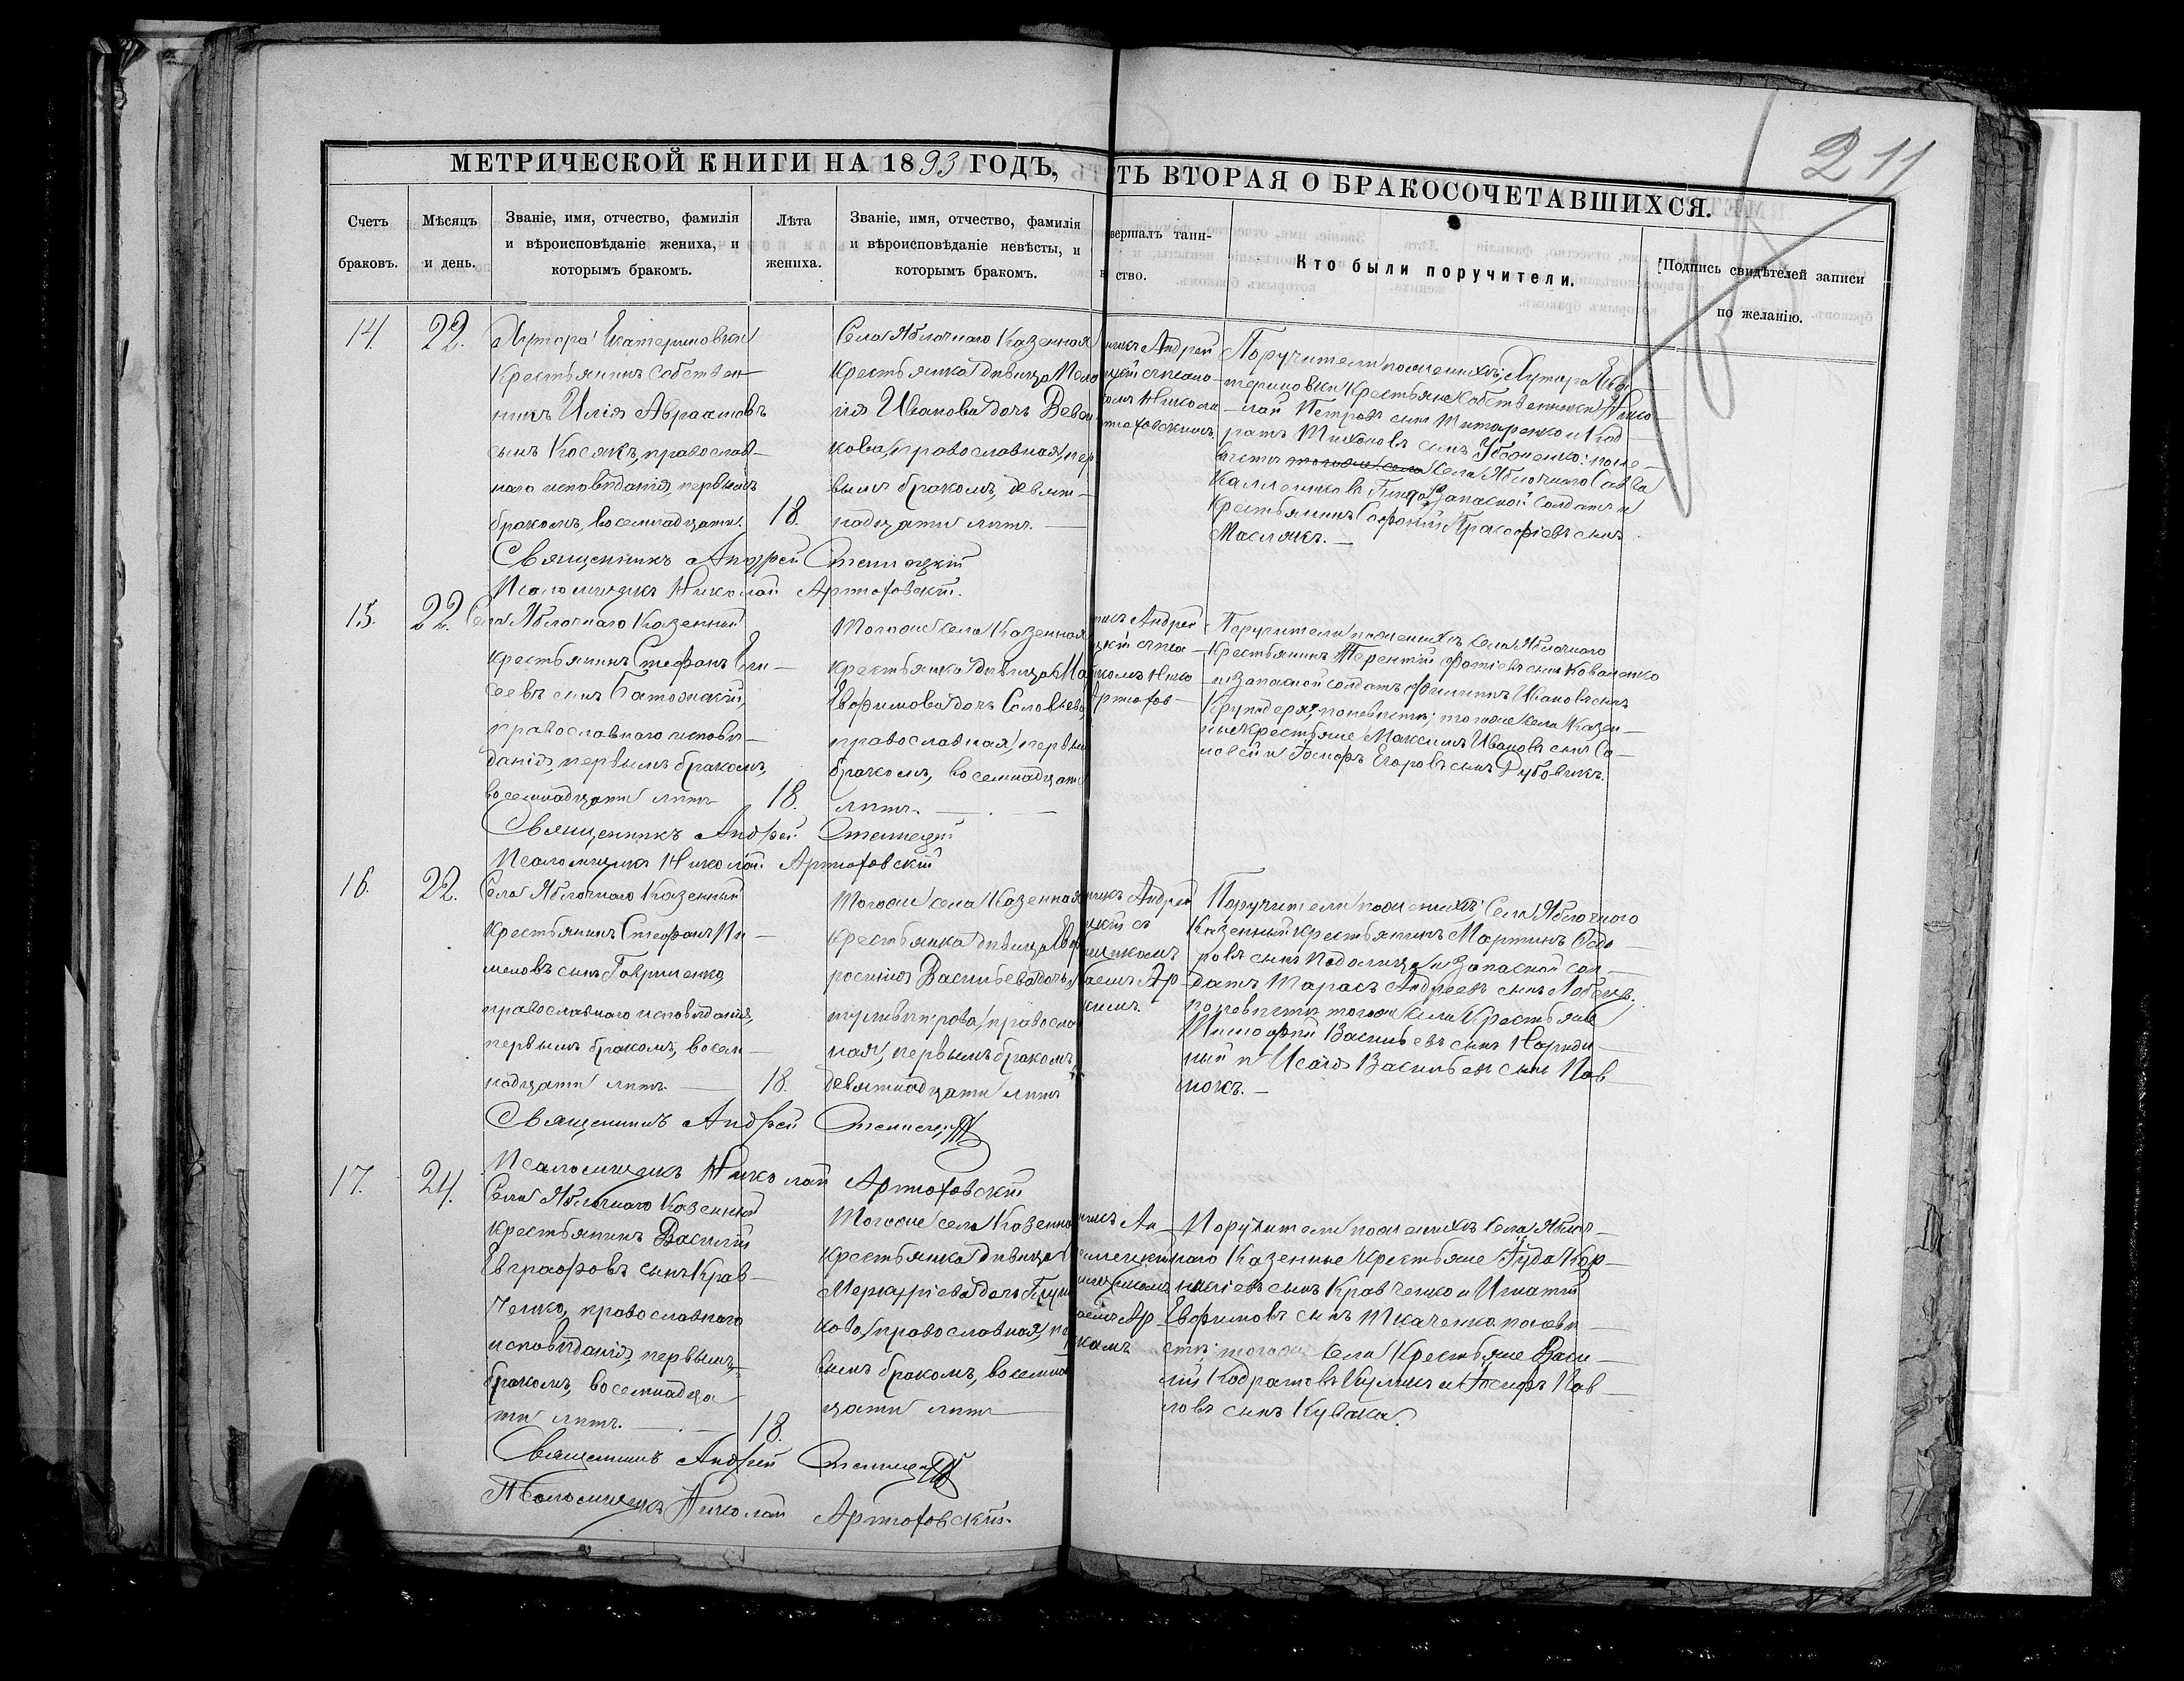 211
МЕТРИЧЕСКОЙ КНИГИ НА 1893 ГОДЪ,
ТЬ ВТОРАЯ О БРАКОСОЧЕТАВШИХСЯ.
Счетъ
браковъ.
Мѣсяцъ
и день.
Званіе, имя, отчество, фамилія
и вѣроисповѣданіе жениха, и
которымъ бракомъ.
Лѣта
жениха.
Званіе, имя, отчество, фамилія
и вѣроисповѣданіе невѣсты, и
которымъ бракомъ.
вершалъ таин-
ство.
Кто были поручители.
Подпись свидѣтелей записи
по желанію.
14.
22.
Хутора Екатериновки
Крестьянинъ Собствен-
никъ Илія Авраамовъ
сынъ Косякъ, православ-
наго исповѣданія, первымъ
бракомъ, восемнадцати.
18.
Села Яблочнаго Казенная
крестьянка дѣвица
Иванова дочь
кова, православная, пер
вымъ бракомъ, девят-
надцати лѣтъ.
никъ Андрей
цкій
омъ Никола
тюховскимъ
Поручители по женихѣ; Хутора Ека-
териновки Крестьяне Собственники Нико-
лай Петровъ сынъ Титаренко и Код-
ратъ Тихоновъ сынъ: по не-
вѣстѣ села Яблочнаго
Запасной Солдатъ и
Крестьянинъ Софоній Прокофіевъ сынъ
Маслякъ.
Священникъ Андрей
Псаломщикъ Николай Артюховскій.
15.
22.
Села Яблочнаго Казенный
крестьянинъ Стефанъ Ели-
сеевъ сынъ
православнаго исповѣ-
данія, первымъ бракомъ,
восемнадцати лѣтъ
18.
Тогоже села Казенная
крестьянка дѣвица
Евфимова дочь Соловьева,
православная, первым
бракомъ, восемнадцати
лѣтъ.
никъ Андрей
цкій съ пса-
комъ Нико
Артюхов-
Поручители по женихѣ села Яблочнаго
Крестьянинъ Терентій Фотіевъ сынъ Коваленко
и запасной солдатъ Филиппъ Ивановъ сынъ
по невѣстѣ; тогоже села Казен-
ные крестьяне Максимъ Ивановъ сынъ Со-
ловей и Іосифъ Егоровъ сынъ Дубовикъ.
Священникъ Андрей
Псаломщикъ Николай Артюховскій
16.
22.
Села Яблочнаго Казенный
крестьянинъ Стефанъ Пи-
меновъ сынъ Гавриленко,
православнаго исповѣданія,
первымъ бракомъ, восем-
надцати лѣтъ.
18.
Тогоже села Казенная
крестьянка дѣвица Евф
росинія Васильева дочь
православ
ная, первымъ бракомъ,
девятнадцати лѣтъ
никъ Андрей
цкій съ
щикомъ
аемъ Ар
кимъ.
Поручители по женихѣ; Села Яблочнаго
Казенный крестьянинъ Мартинъ Ѳедо-
ровъ сынъ и Запасной сол-
датъ Тарасъ Андреевъ сынъ
по невѣстѣ тогоже села Крестьяне
Тимофей Васильевъ сынъ
ный и Исаія Васильевъ сынъ Пав
люкъ.
Священникъ Андрей
Псаломщикъ Николай Артюховскій
17.
24.
Села Яблочнаго Казенный
крестьянинъ Василій
Евграфовъ сынъ Крав-
ченко, православнаго
исповѣданія, первымъ
бракомъ, восемнадца
ти лѣтъ.
18.
Тогоже села Казенна
крестьянка дѣвица
Меркуріева дочь
кова, православная, пер
вымъ бракомъ, восемнад
цати лѣтъ
никъ Ан-
щикомъ
аемъ Ар
кимъ
Поручители по женихѣ Села Яблоч-
наго Казенные Крестьяне Іуда Кор-
ниліевъ сынъ Кравченко и Игнатій
Евфимовъ сынъ Ткаченко по невѣ-
стѣ: тогоже села Крестьяне Васи-
лій Кодратовъ Куликъ и Іосифъ Пав-
ловъ сынъ
Священникъ Андрей
Псаломщикъ Николай Артюховскій.